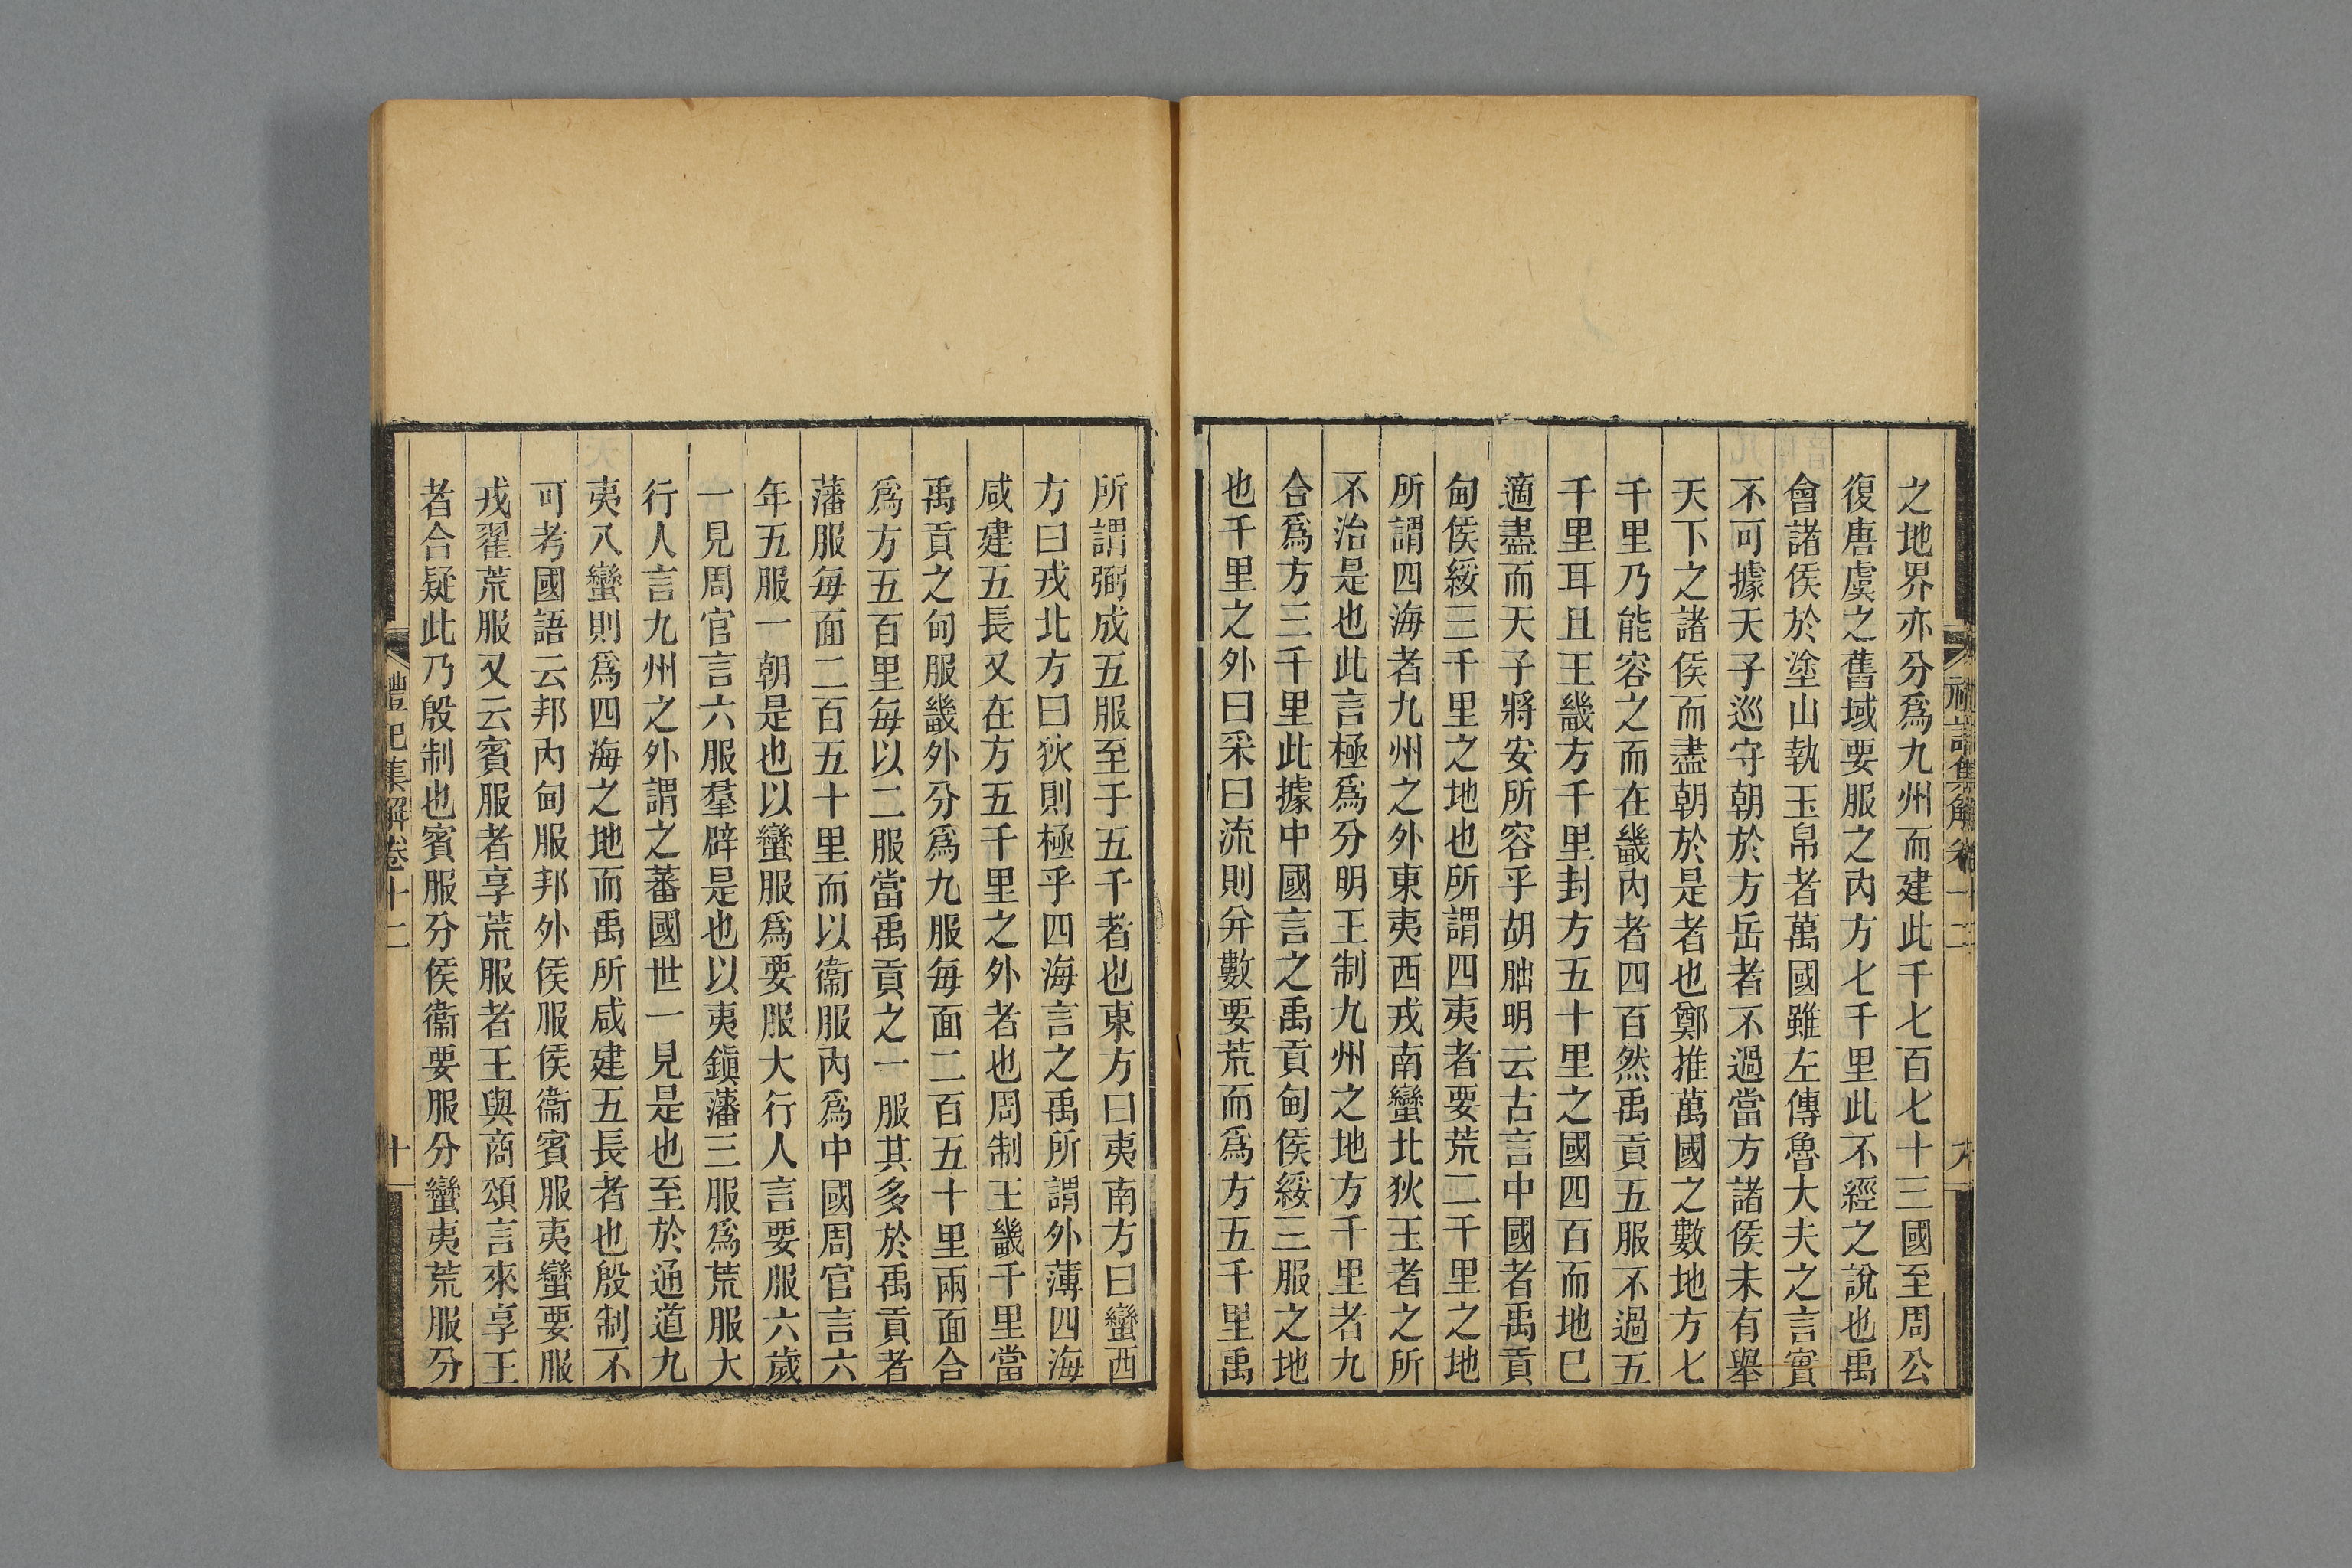 之地界亦分爲九州而建此千七百七十三國至周公
復唐虞之舊域要服之內方七千里此不經之說也禹
會諸侯於塗山執玉帛者萬國雖左傳魯大夫之言實
不可據天子巡守朝於方岳者不過當方諸侯未有舉
天下之諸侯而盡朝於是者也鄭推萬國之數地方七
千里乃能容之而在畿內者四百然禹貢五服不過五
千里耳且王畿方千里封方五十里之國四百而地已
適盡而天子將安所容乎胡朏明云古言中國者禹貢
甸侯綏三千里之地也所謂四夷者要荒二千里之地
所謂四海者九州之外東夷西戎南蠻北狄王者之所
不治是也此言極爲分明王制九州之地方千里者九
合爲方三千里此據中國言之禹貢甸侯綏三服之地
也千里之外曰采曰流則并數要荒而爲方五千里禹
所謂弼成五服至于五千者也東方曰夷南方曰蠻西
方曰戎北方曰狄則極乎四海言之禹所謂外薄四海
咸建五長又在方五千里之外者也周制王畿千里當
禹貢之甸服畿外分爲九服每面二百五十里兩面合
爲方五百里每以二服當禹貢之一服其多於禹貢者
藩服每面二百五十里而以衞服內爲中國周官言六
年五服一朝是也以蠻服爲要服大行人言要服六歲
一見周官言六服羣辟是也以夷鎭藩三服爲荒服大
行人言九州之外謂之蕃國世一見是也至於通道九
夷八蠻則爲四海之地而禹所咸建五長者也殷制不
可考國語云邦內甸服邦外侯服侯衞賓服夷蠻要服
戎翟荒服又云賓服者享荒服者王與商頌言來享王
者合疑此乃殷制也賓服分侯衞要服分蠻夷荒服分
禮記集解卷十二
十